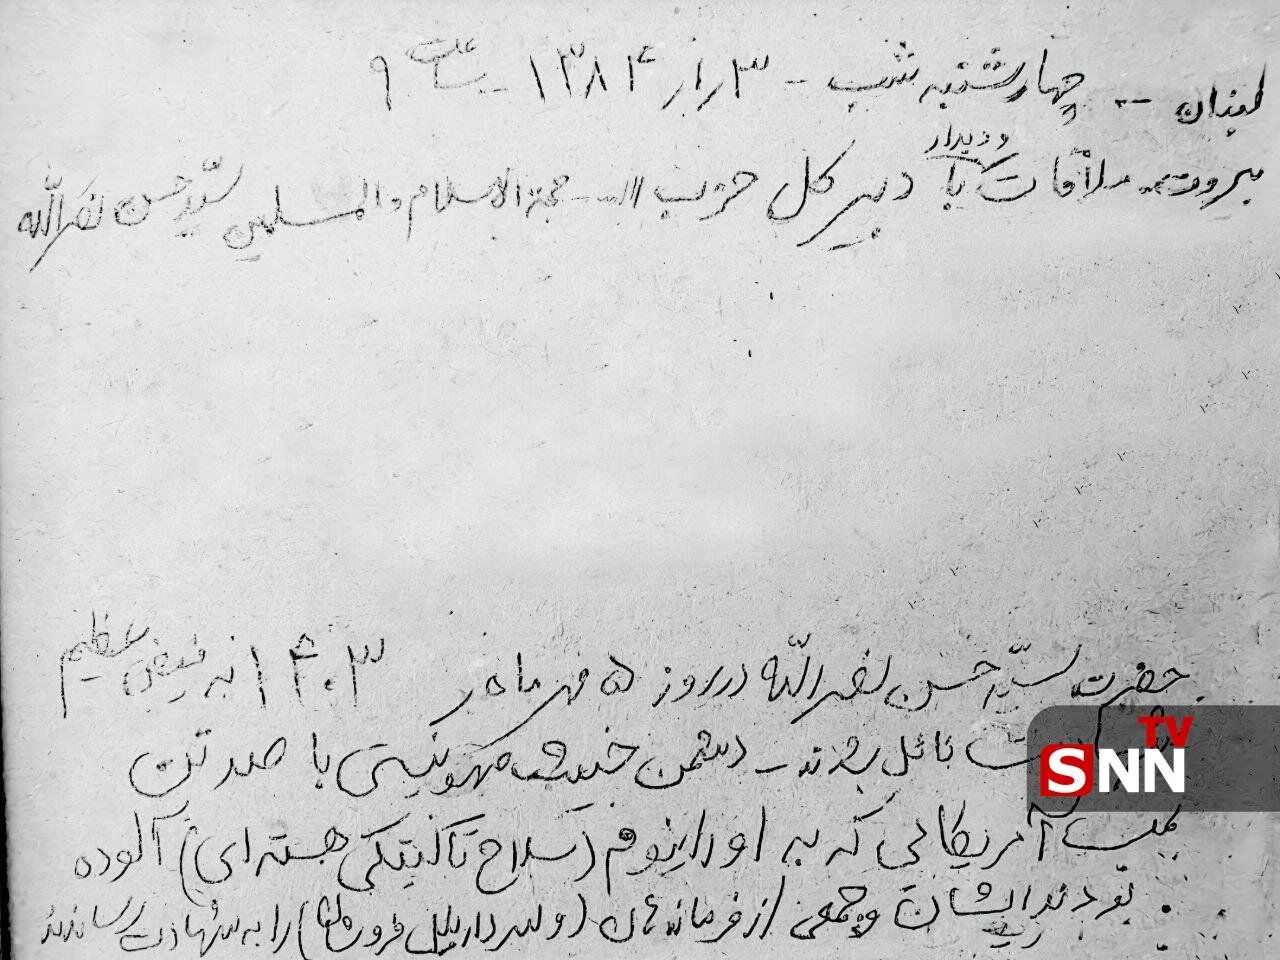 لبنان -- چهارشنبه شب -- ۱۳۸۴/۱/۳ -- ساعت ۹
بیروت ملاقات و دیدار با دبیر کل حزب الله - حجة الاسلام والمسلمین سیّد حسن نصرالله
حضرت سیّد حسن نصرالله در روز ۵ مهر ماه ۱۴۰۳ به فیض عظیم
نائل شدند - دشمن خبیث صهونیستی با صد تن
بمب آمریکائی که به اورانیوم (سلاح تاکتیکی هسته ای) آلوده
بودند ایشان و جمعی از فرمانده هان (و سردار نیل فروشان) را به شهادت رساندند
SNN TV